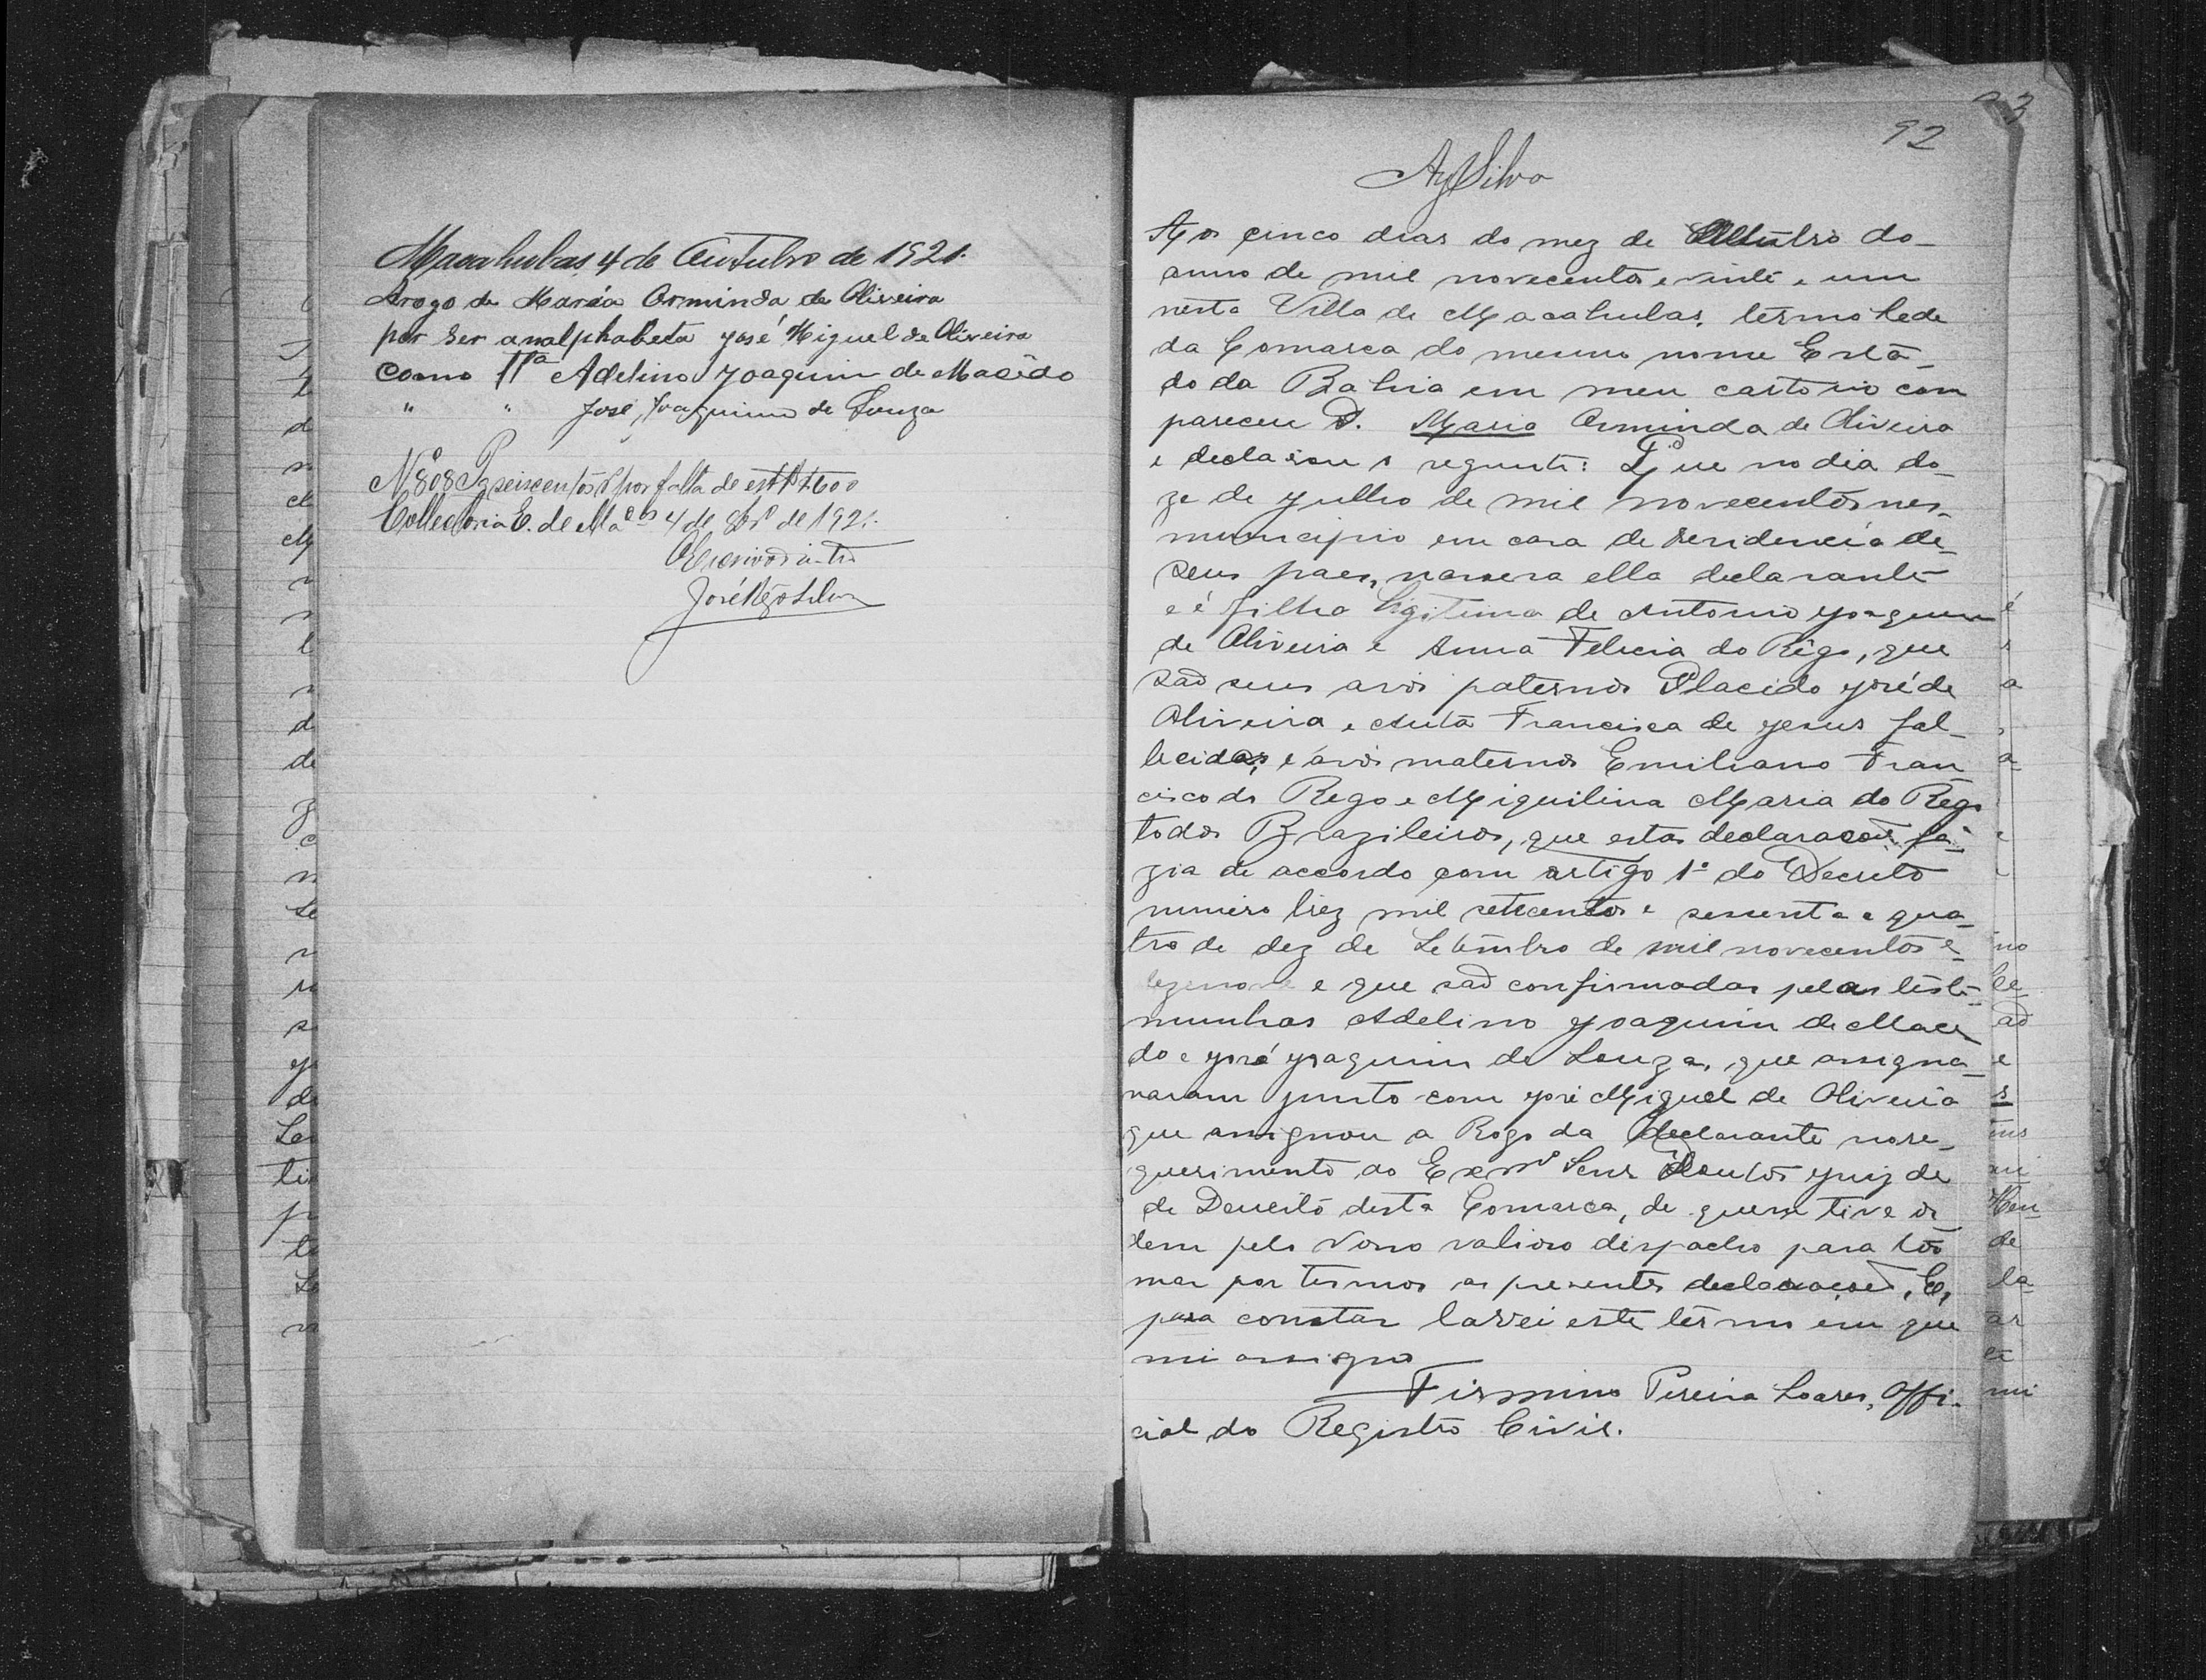 Macahubas, 4 de Outubro de 1921.
Arogo de Maria Orminda de Oliveira
por ser analphabeta José Miguel de Oliveira
como Tta Adelino Joaquim de Macêdo
" " José Joaquim de Souza
Nº 808 Pg seiscentos rs por falta de estps $600
Collectoria E. de Macas 4 de 8bro de 1921.
O Escrivão
José Rêgo
92
Aos cinco dias do mez de Outubro do
anno de mil novecentos e vinte e um
nesta Villa de Macahubas, termo Sede
da Comarca do mesmo nome Esta-
do da Bahia em meu cartorio com
pareceu D. Maria Orminda de Oliveira
e declarou o seguinte: Que no dia do-
ze de julho de mil novecentos nes-
municipio em casa de residencia de
seus paes, nascera ella declarante
e é filha legitima de Antonio Joaquim
de Oliveira e Anna Felicia do Rêgo, que
são seus avós paternos Placido José de
Oliveira e Anta Francisca de Jesus fal-
lecidos, e avós maternos Emiliano Fran
cisco do Rego e Miquilina Maria do Rego
todos Brazileiros, que estas declarações fa-
zia de accordo com artigo 1º do Decreto
numero trez mil setecentos e sessenta e qua-
tro de dez de Setembro de mil novecentos e
dezenove e que são confirmadas pelas teste-
munhas Adelino Joaquim de Mace
do e José Joaquim de Souza, que assigna-
naram junto com José Miguel de Oliveira
que assignou a Rogo da declarante no re-
querimento ao Exmº Senr Doutor juiz de
de Dereito desta Comarca, de quem tive or
dem pelo vosso valioso despacho para to
mar por termos as presentes declarações, E,
para constar lavrei este termo em que
mi assigno
Firmino Pereira Soares, Offi-
cial do Registro Civil.